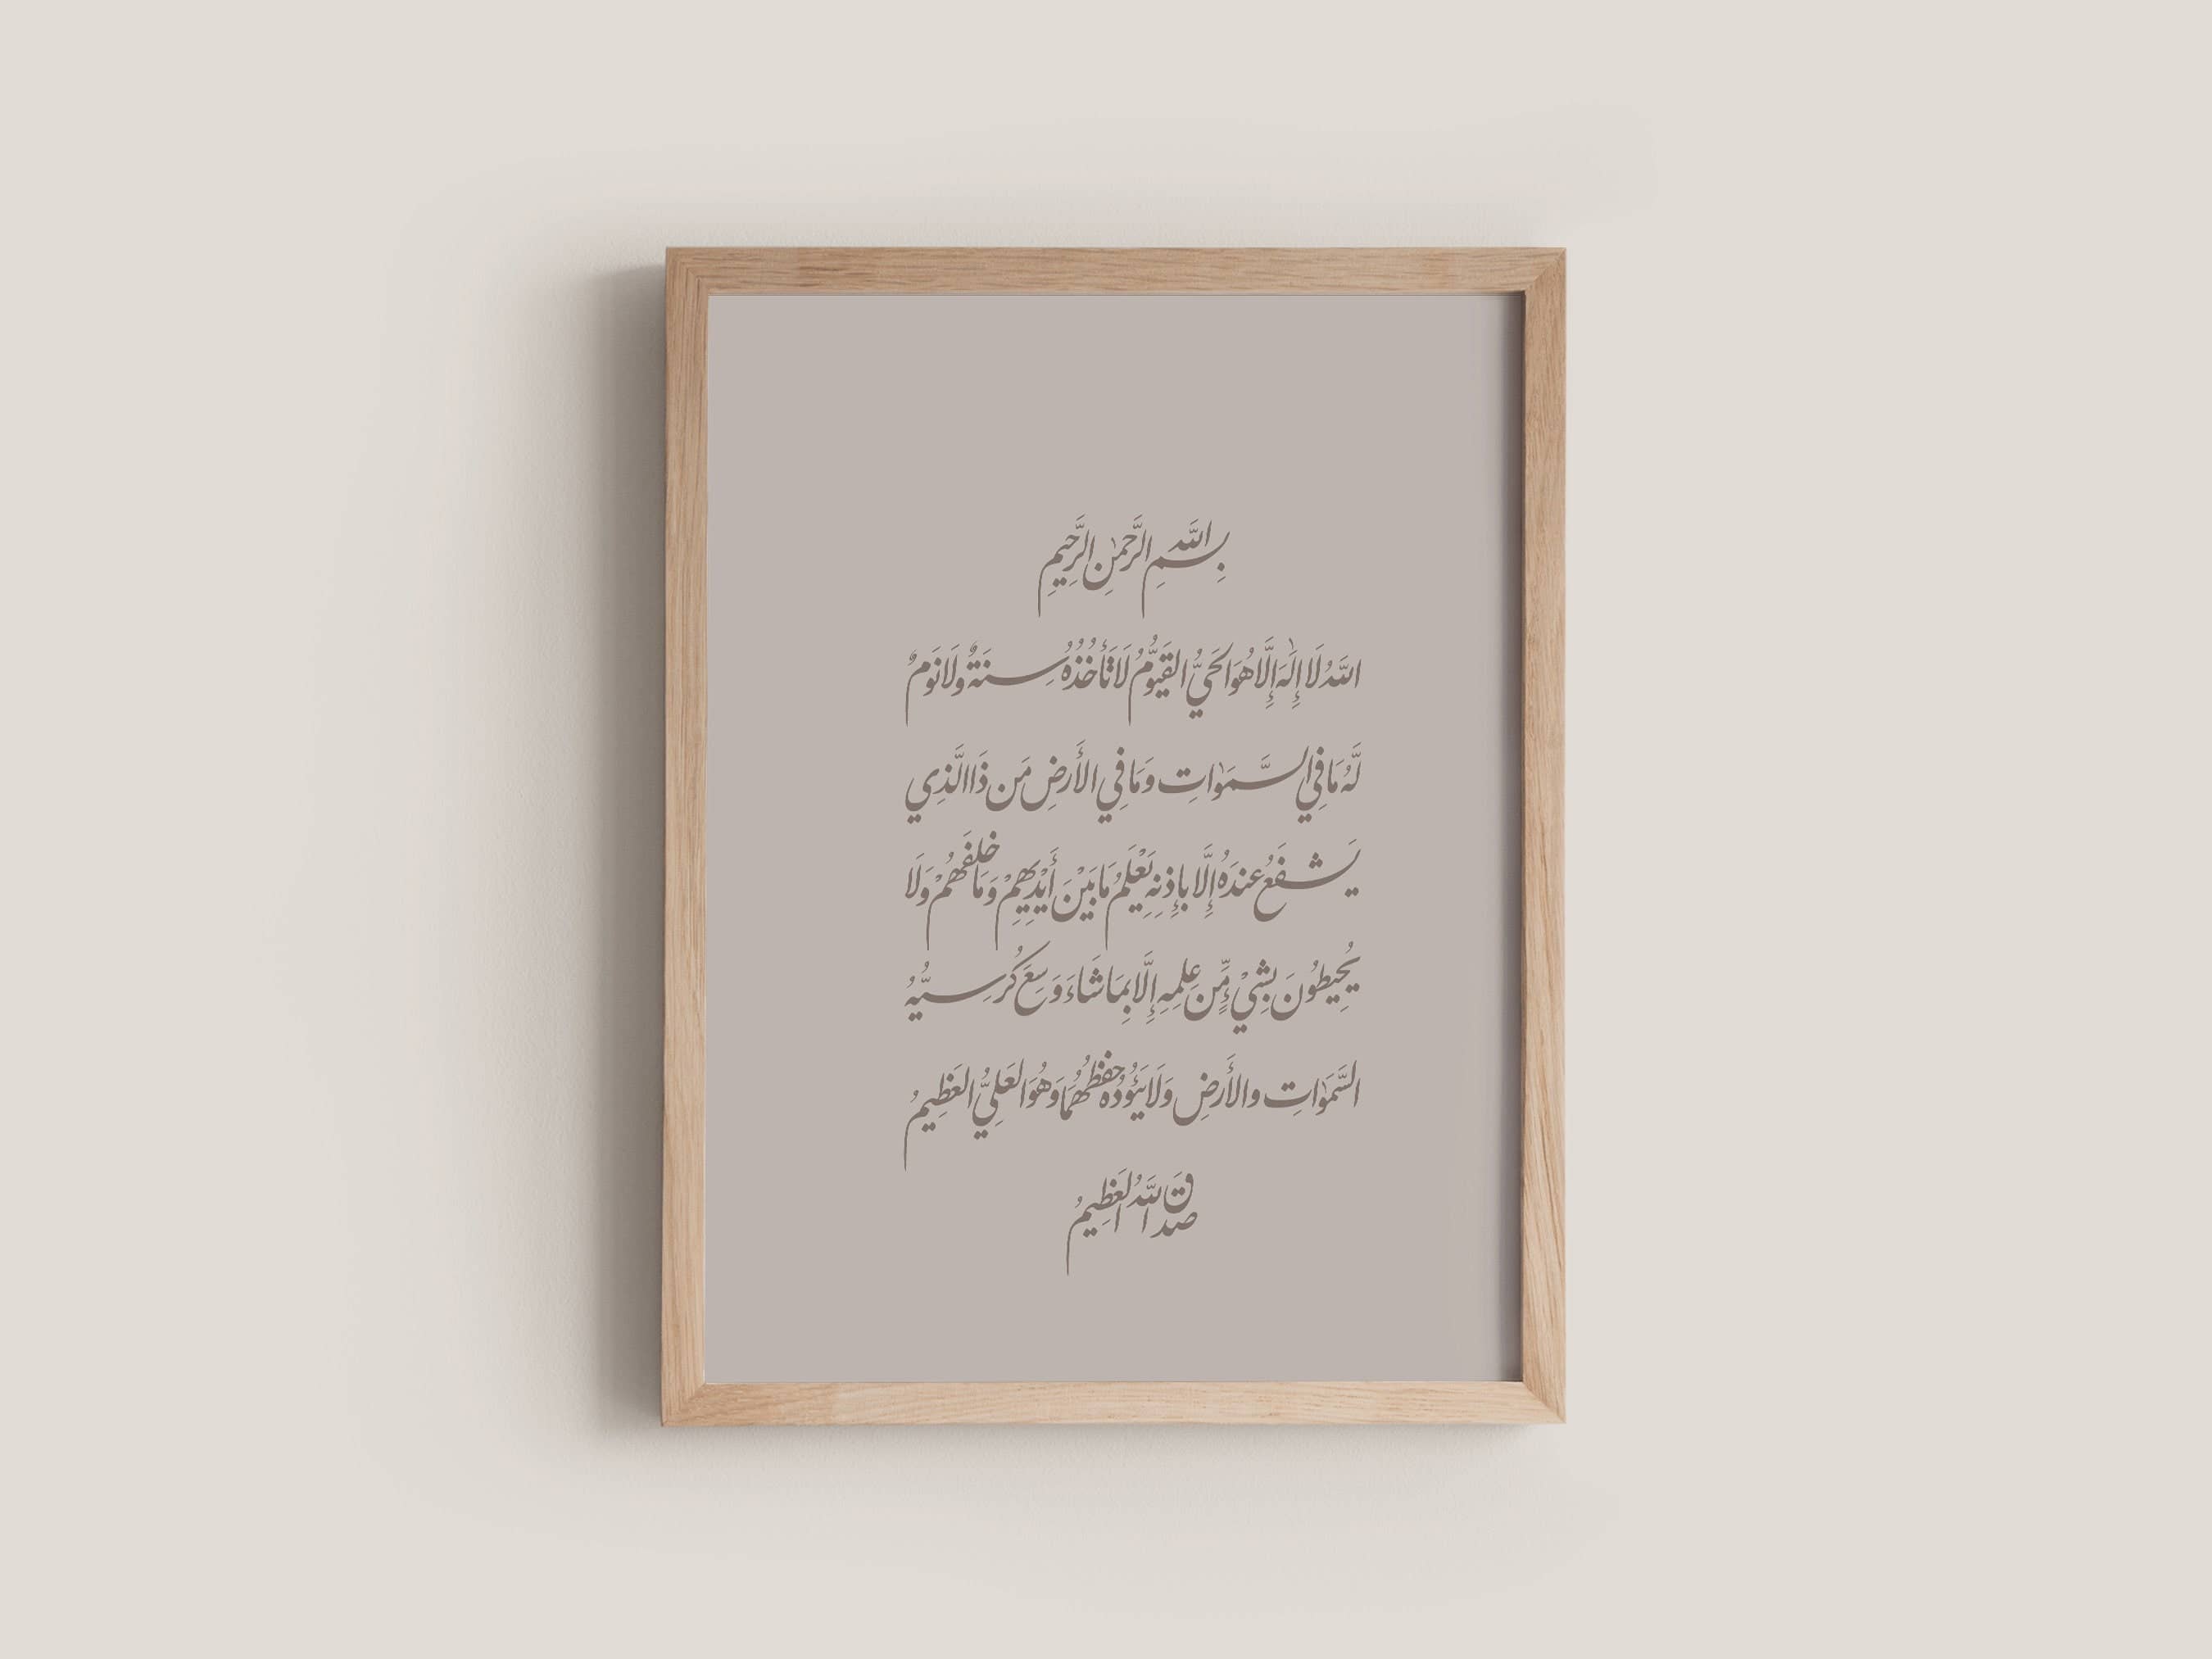 بِسمِ اللَّهِ الرَّحمٰنِ الرَّحِيمِ
اللَّهُ لَا إِلٰهَ إِلَّا هُوَ الحَيُّ القَيُّومُ لَا تَأْخُذُهُ سِنَةٌ ولَا نَومٌ
لَّهُ مَا فِي السَّمَوٰاتِ وَمَا فِي الأَرضِ مَن ذَا الَّذِي
يَشفَعُ عِندَهُ إِلَّا بِإِذنِهِ يَعْلَمُ مَا بَيْنَ أَيْدِيهِمْ وَمَا خَلفَهُمْ وَلَا
يُحِيطُونَ بِشَيْءٍ مِّن عِلمِهِ إِلَّا بِمَا شَاءَ وَسِعَ كُرسِيُّهُ
السَّمَوٰاتِ والأَرضِ وَلَا يَئُودُهُ حِفظُهُمَا وَهُوَ العَلِيُّ العَظِيمُ
صدقَ اللَّهُ العَظِيمُ